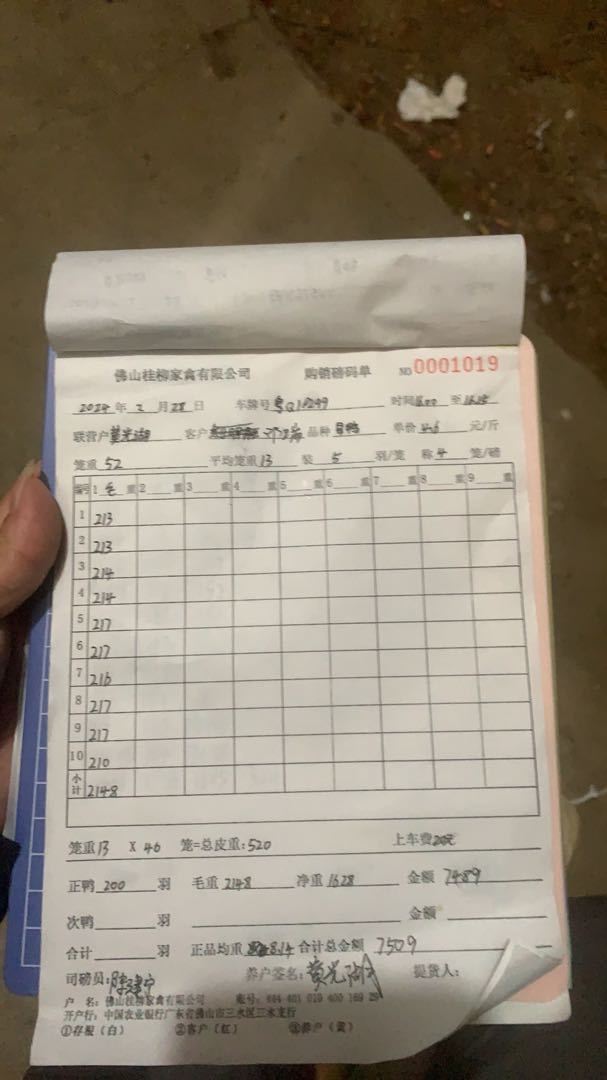 佛山桂柳家禽有限公司 购销磅码单 NO 0001019
2024年2月28日 车牌号 时间 至
联营户 黄光湖 客户 品种 单价 4.6 元/斤
笼重 52 平均笼重 13 装 5 羽/笼 称 4 笼/磅
编号 1 毛 重 2 重 3 重 4 重 5 重 6 重 7 重 8 重 9 重
1 213
2 213
3 214
4 214
5 217
6 217
7 216
8 217
9 217
10 210
小计 2148
笼重 13 X 40 笼=总皮重: 520 上车费 20元
正鸭 200 羽 毛重 2148 净重 1628 金额 7489
次鸭 羽 金额
合计 羽 正品均重 8.14 合计总金额 7509
司磅员: 养户签名: 黄光湖 提货人:
户 名: 佛山桂柳家禽有限公司 账号:
开户行: 中国农业银行广东省佛山市三水区三水支行
①存根(白) ②客户(红) ③养户(黄)